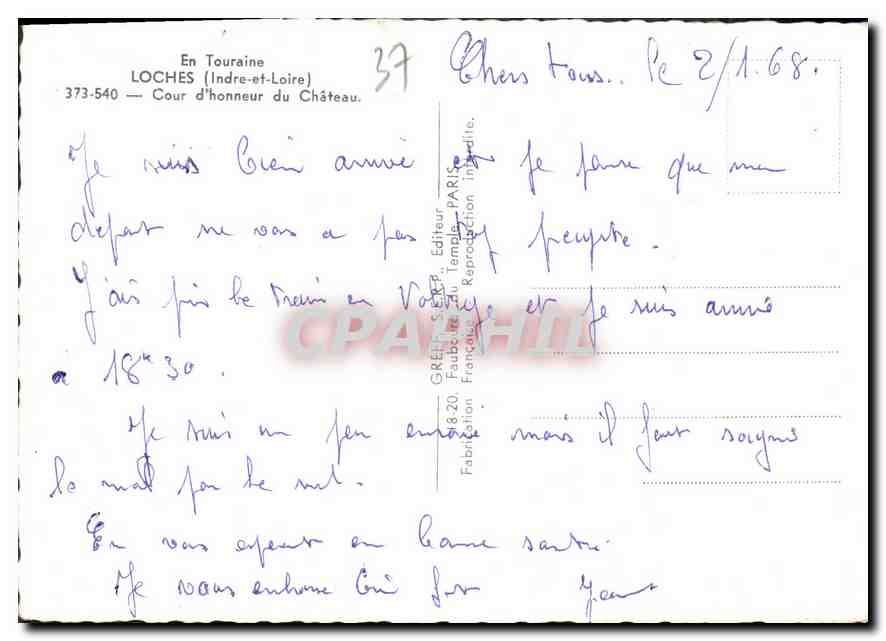 En Touraine
LOCHES (Indre-et-Loire)
373-540 — Cour d'honneur du Château.
37
Chers tous.. le 2/1.68.
Je suis bien arrivé et je pense que mon
départ ne vous a pas trop
J'ais pris le train en et je suis arrivé
à 18h30.
Je suis un peu mais il faut soigné
le mal par le mal.
En vous espérant en bonne santé.
Je vous embrasse bien fort
GREFF S.E.R.P., Editeur
18-20, Faubourg du Temple, PARIS
Fabrication Française Reproduction interdite.
CPAPHIL